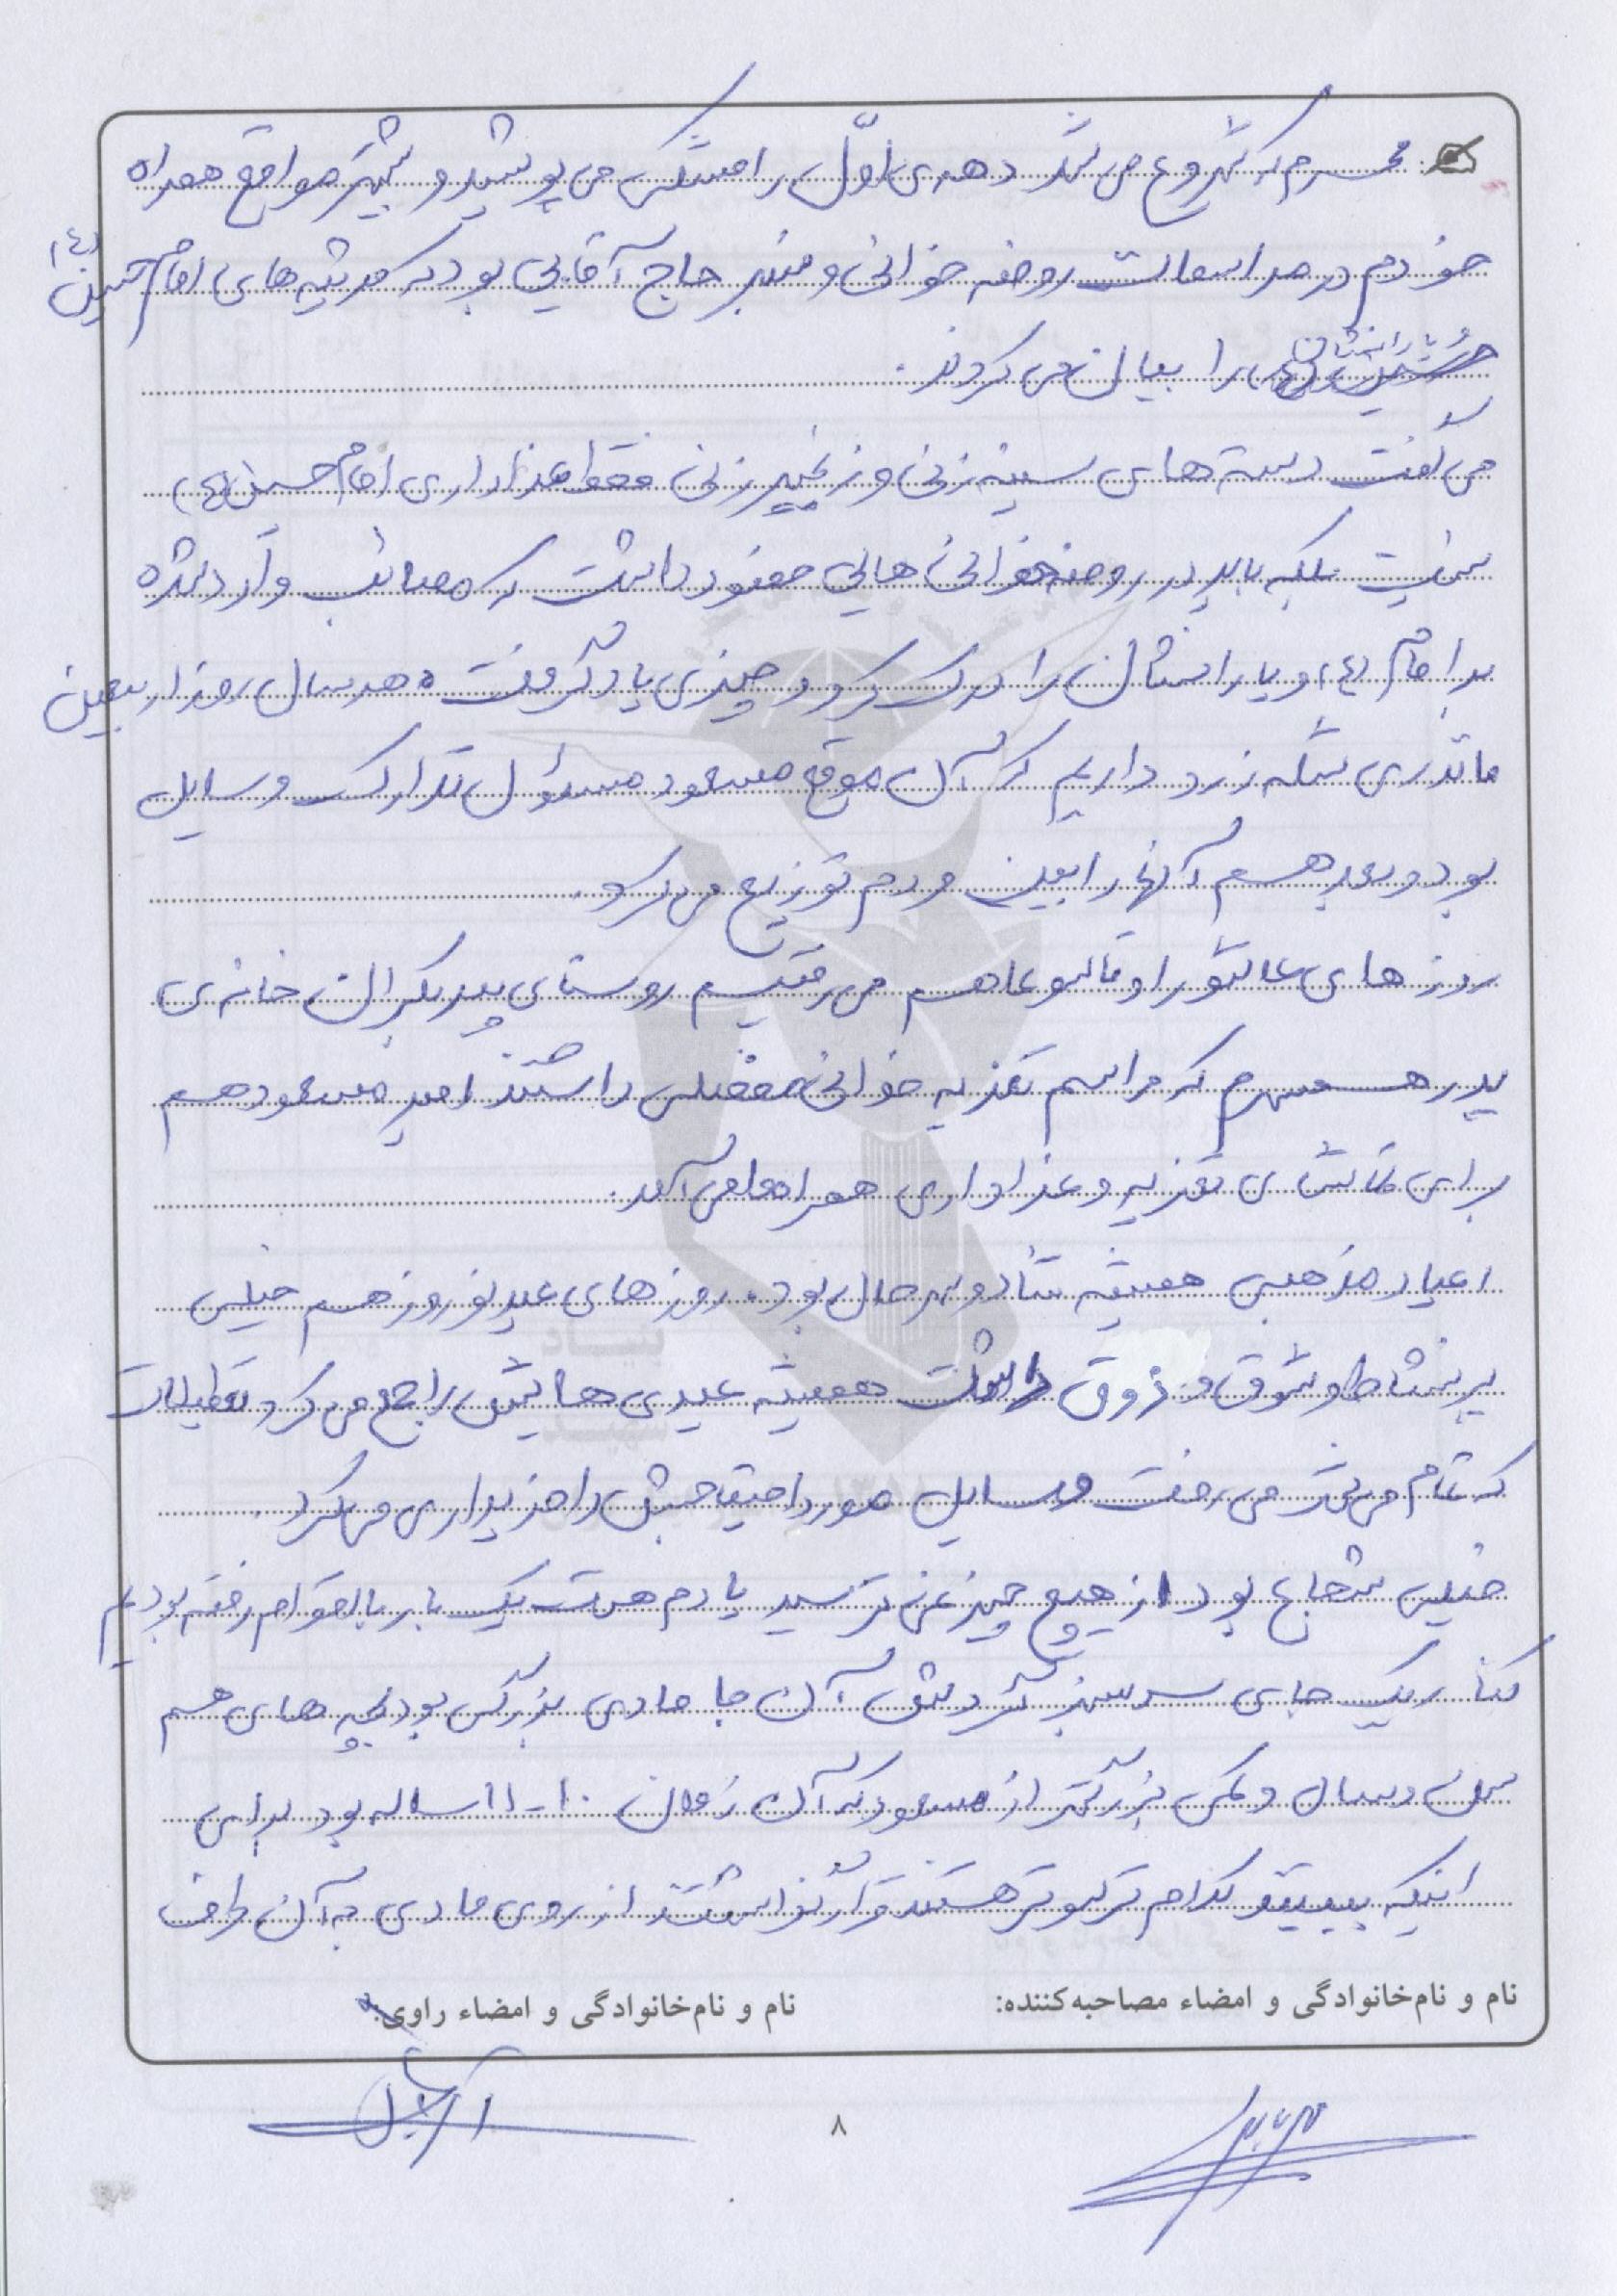 محرم که شروع می شد دهه ی اوّل را مشکی می پوشید و بیشتر مواقع همراه
خودم در مراسمات روضه خوانی و منبر حاج آقایی بود که مرثیه های امام حسین (ع)
و یارانشان را بیان می کردند.
می گفت دسته های سینه زنی و زنجیر زنی فقط عزاداری امام حسین (ع)
نیست بلکه باید در روضه خوانی هایی حضور داشت که مصائب وارد شده
بر امام (ع) و یارانشان را درک کرد و چیزی یاد گرفت. هر سال روز اربعین
ما نذری شله زرد داریم که آن موقع مسعود مسئول تدارک وسایل
بود و بعد هم آنها را بین مردم توزیع می کرد.
روزهای عاشورا و تاسوعا هم می رفتیم روستای پیربکران خانه ی
پدر همسرم که مراسم تعزیه خوانی مفصلی داشتند امیر مسعود هم
برای تماشای تعزیه و عزاداری همراه ما می آمد.
اعیاد مذهبی همیشه شاد و سرحال بود. روزهای عید نوروز هم خیلی
پر نشاط و شوق و ذوق داشت همیشه عیدی هایش را جمع می کرد تعطیلات
که تمام می شد می رفت وسایل مورد احتیاجش را خریداری می کرد.
خیلی شجاع بود از هیچ چیز نمی ترسید یادم هست یک بار با اقوام رفته بودیم
کنار یک جای سرسبز گردش آن جا مادی بزرگی بود بچه های هم
سن و سال و کمی بزرگتر از مسعود که آن زمان ۱۰-۱۱ ساله بود برای
اینکه ببینند کدام ترسوتر هستند قرار گذاشتند از روی مادی به آن طرف
نام و نام‌خانوادگی و امضاء مصاحبه‌کننده:
نام و نام‌خانوادگی و امضاء راوی:
۸